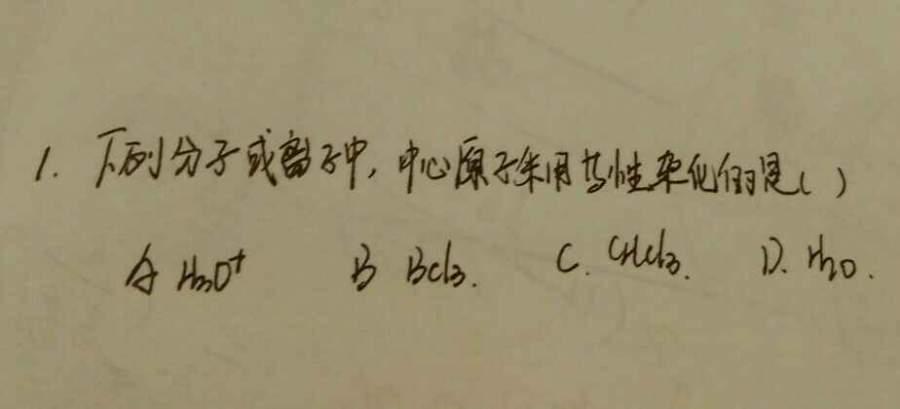 1. 下列分子或离子中,中心原子采用等性杂化的是( )
A H₃O⁺ B BCl₃. C. CHCl₃. D. H₂O.